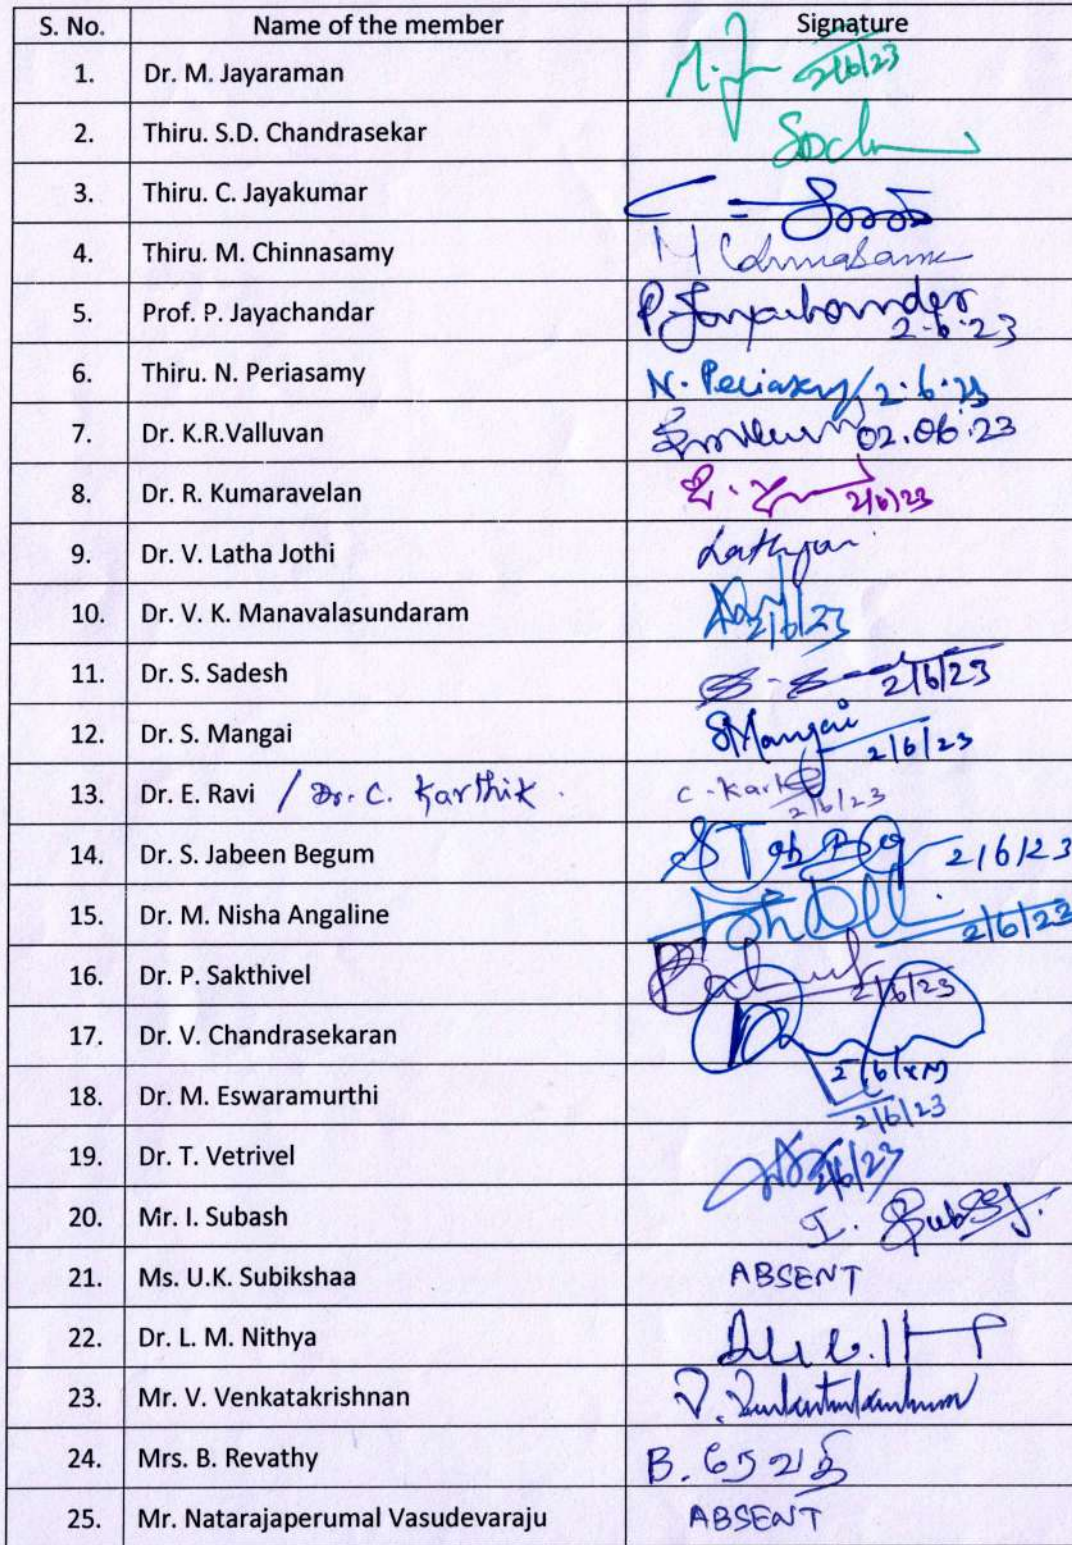 S. No. Name of the member Signature
1. Dr. M. Jayaraman 2/6/23
2. Thiru. S.D. Chandrasekar
3. Thiru. C. Jayakumar
4. Thiru. M. Chinnasamy
5. Prof. P. Jayachandar 2.6.23
6. Thiru. N. Periasamy N. 2.6.23
7. Dr. K.R.Valluvan 02.06.23
8. Dr. R. Kumaravelan 2/6/23
9. Dr. V. Latha Jothi
10. Dr. V. K. Manavalasundaram 2/6/23
11. Dr. S. Sadesh 2/6/23
12. Dr. S. Mangai S Mangai 2/6/23
13. Dr. E. Ravi / Dr. C. Karthik. 2/6/23
14. Dr. S. Jabeen Begum 2/6/23
15. Dr. M. Nisha Angaline 2/6/23
16. Dr. P. Sakthivel 2/6/23
17. Dr. V. Chandrasekaran
18. Dr. M. Eswaramurthi 2/6/23
19. Dr. T. Vetrivel 2/6/23
20. Mr. I. Subash I.
21. Ms. U.K. Subikshaa ABSENT
22. Dr. L. M. Nithya
23. Mr. V. Venkatakrishnan
24. Mrs. B. Revathy B. ரேவதி
25. Mr. Natarajaperumal Vasudevaraju ABSENT